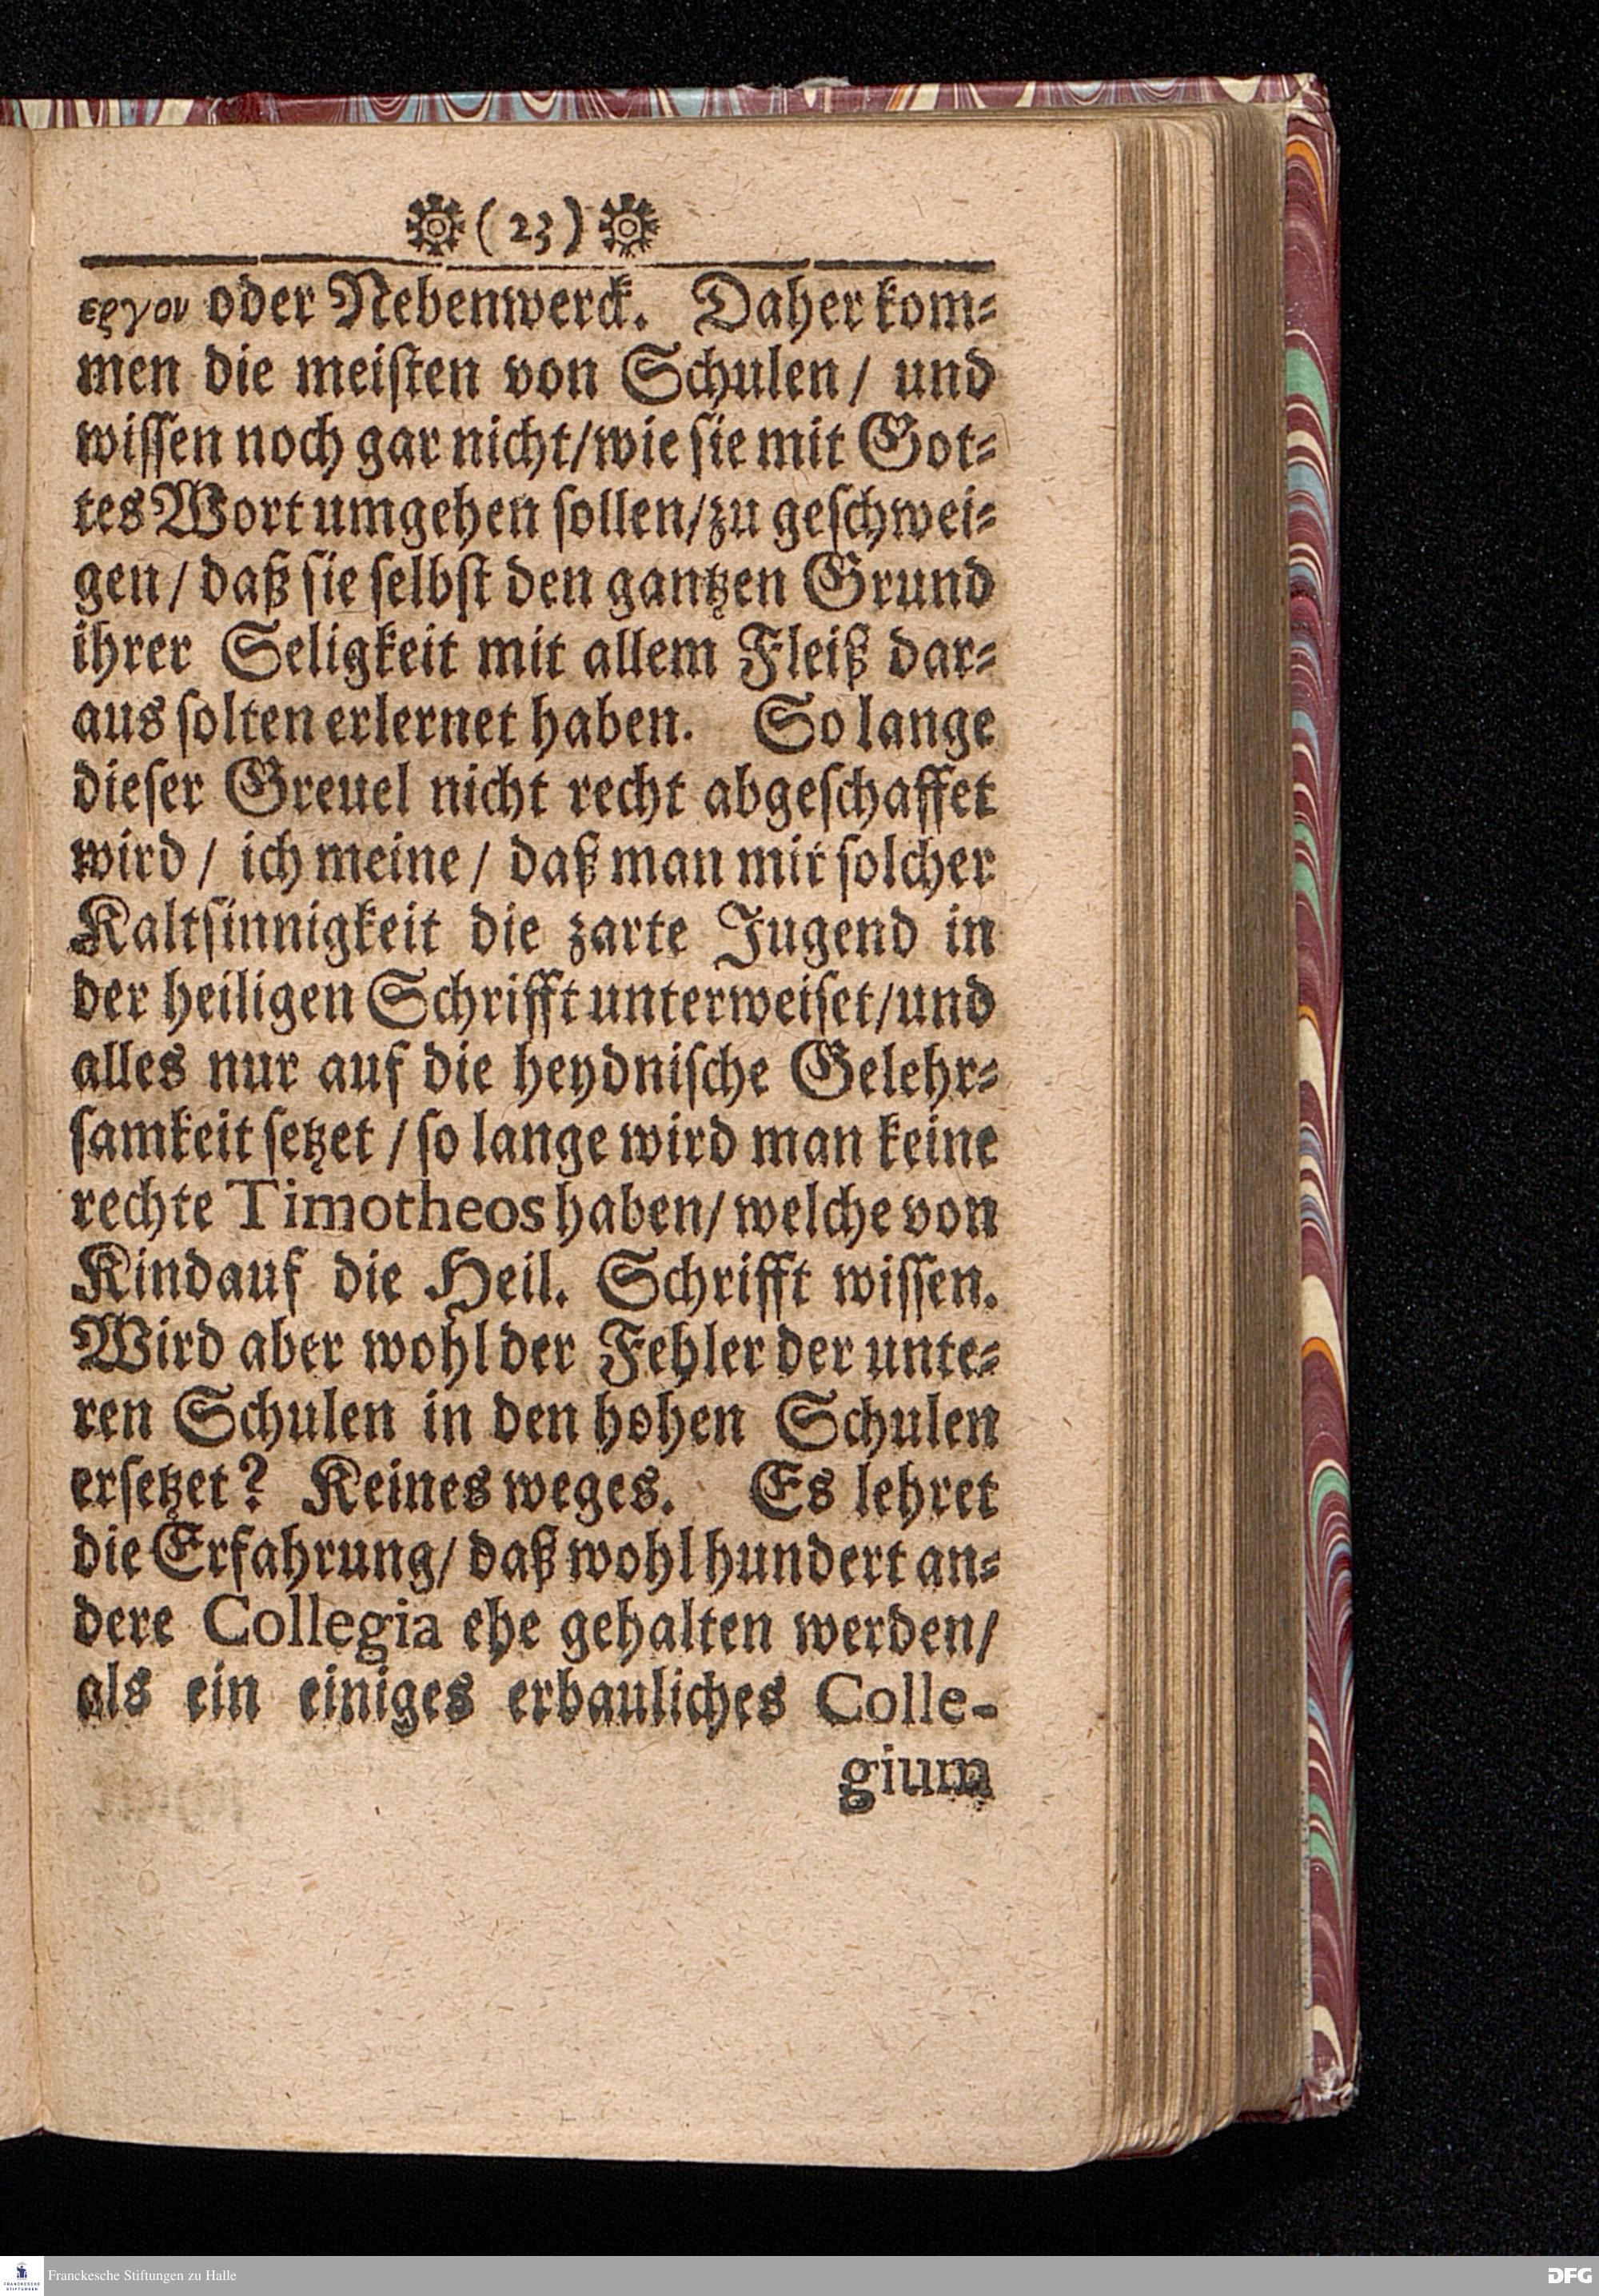 (23)
εργον oder Nebenwerck. Daher kom⸗
men die meiſten von Schulen / und
wiſſen noch gar nicht/wie ſie mit Got⸗
tes Wort umgehen ſollen/zu geſchwei⸗
gen / daß ſie ſelbſt den gantzen Grund
ihrer Seligkeit mit allem Fleiß dar⸗
aus ſolten erlernet haben. So lange
dieſer Greuel nicht recht abgeſchaffet
wird / ich meine / daß man mit ſolcher
Kaltſinnigkeit die zarte Jugend in
der heiligen Schrifft unterweiſet/und
alles nur auf die heydniſche Gelehr⸗
ſamkeit ſetzet / ſo lange wird man keine
rechte Timotheos haben/ welche von
Kindauf die Heil. Schrifft wiſſen.
Wird aber wohl der Fehler der unte⸗
ren Schulen in den hohen Schulen
erſetzet? Keines weges. Es lehret
die Erfahrung/ daß wohl hundert an⸗
dere Collegia ehe gehalten werden/
als ein einiges erbauliches Colle-
gium
FRANCKESCHE STIFTUNGEN
Franckesche Stiftungen zu Halle
DFG